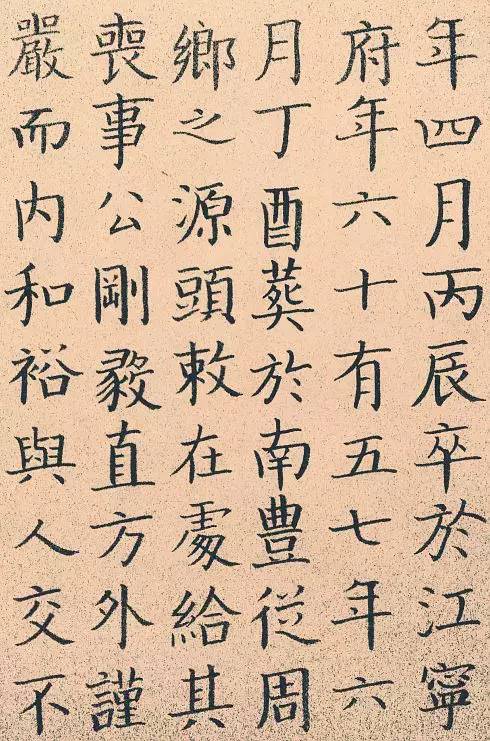 年四月丙辰卒於江寧
府年六十有五七年六
月丁酉葬於南豐從周
鄉之源頭敕在處給其
喪事公剛毅直方外謹
嚴而内和裕與人交不